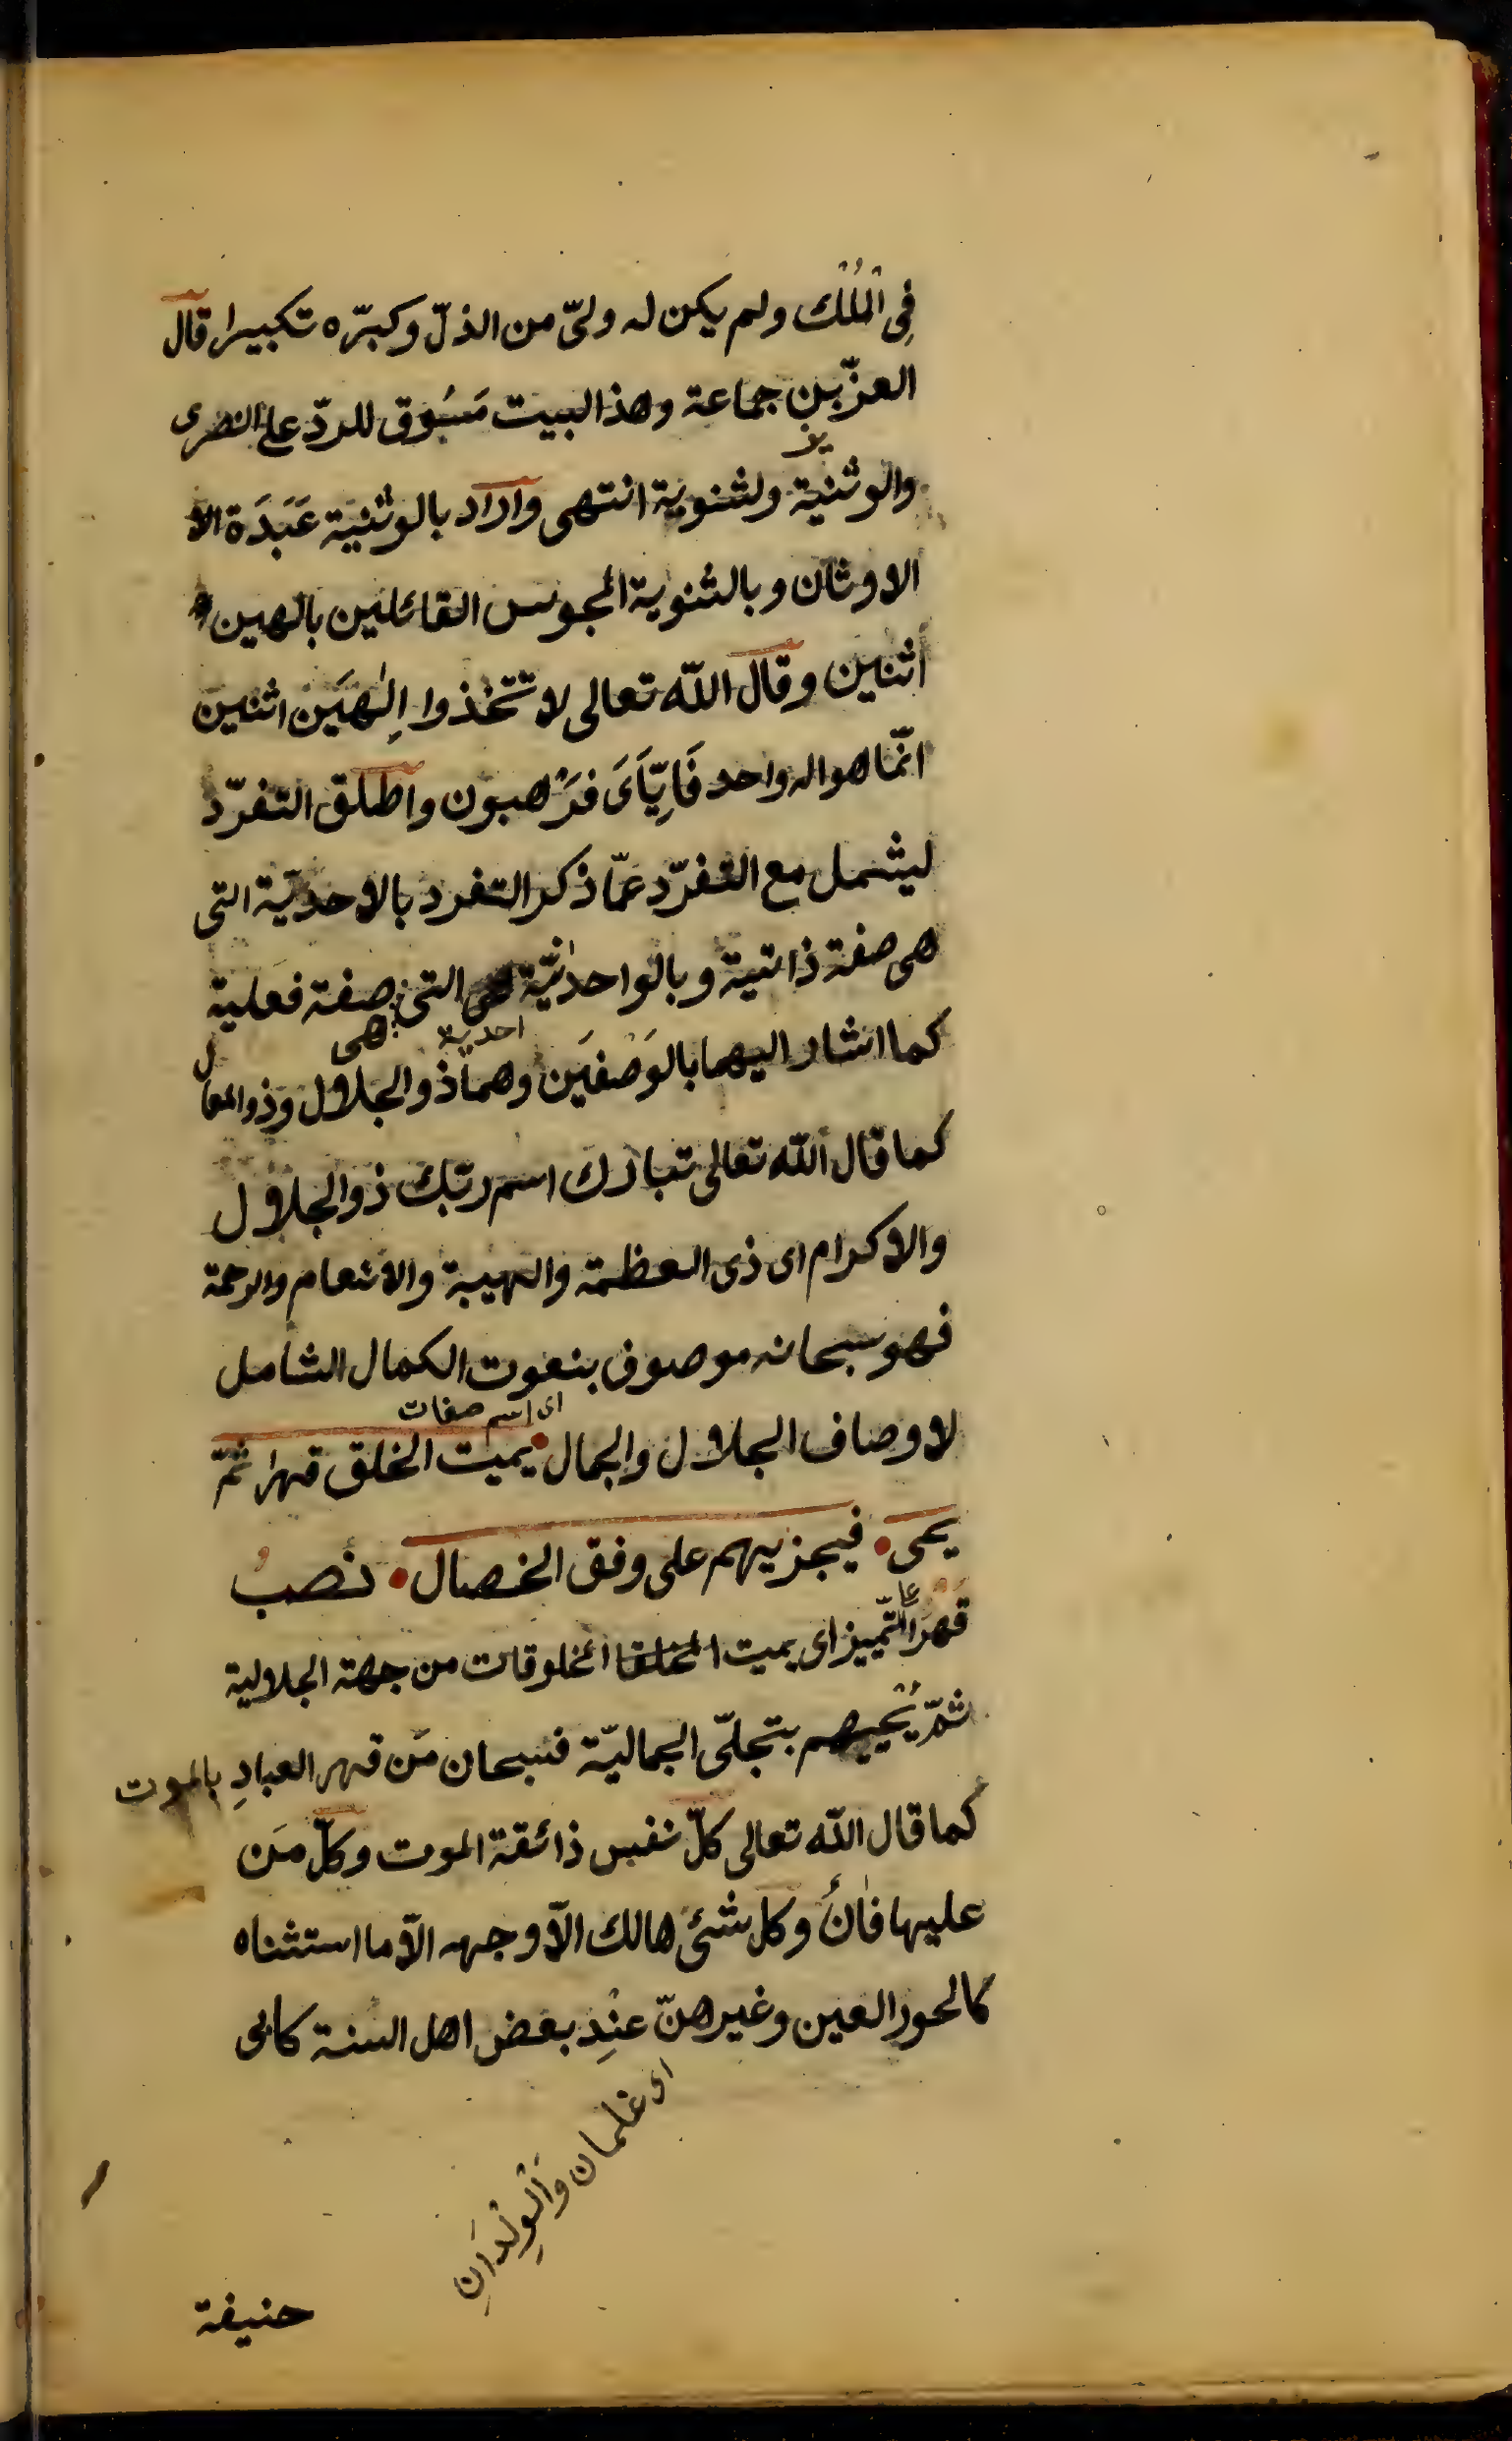 فِى الْمُلْك ولم يكن له ولىّ من الذلّ وكبّره تكبيرا قال
العزّ بن جماعة وهذ البيت مَسُوق للردّ على النصرى
والوثنية ولثنوية انتهى واراد بالوثنية عَبَدَة الا
الاوثان وبالثنوية المجوس القائلين بالهين
اثنين وقال اللّه تعالى لا تتخذوا اِلٰهَيَن اثنين
انّما هو اله واحد فَاِيّاَىَ فَرْهبون واطلق التفرّد
ليشمل مع التفرّد عمّا ذكر التفرد بالاحديّة التى
هى صفة ذاتية وبالواحدنيّة التى صفة فعلية
هى
احدية
كما اشار اليهما بالوَصْفَين وهما ذو الجلال وذو المعال
كما قال اللّه تعالى تبارك اسم ربّك ذو الجلال
والاكرام اى ذى العظمة والهيبة والانعام والرحمة
فهو سبحانه موصوف بنعوت الكمال الشامل
اى اسم صفات
لاوصاف الجلال والجمال • يميت الخلق قهرا ثمّ
يحى • فيجزيهم على وفق الخصال • نُصب
قهرًا على التّمييز اى يميت الخلقا المخلوقات من جهة الجلالية
ثمّ يُحْييهم بتجلّى الجماليّة فسبحان مَن قهر العبادِ بالموت
كما قال اللّه تعالى كلّ نفس ذائقة الموت وكلّ مَن
عليها فانٌ وكل شئ هالك الّا وجهه الّا ما استثناه
كالحور العين وغيرهنّ عنِد بعض اهل السنة كابى
اى غلمان وَالْوِلْدَانِ
حنيفة